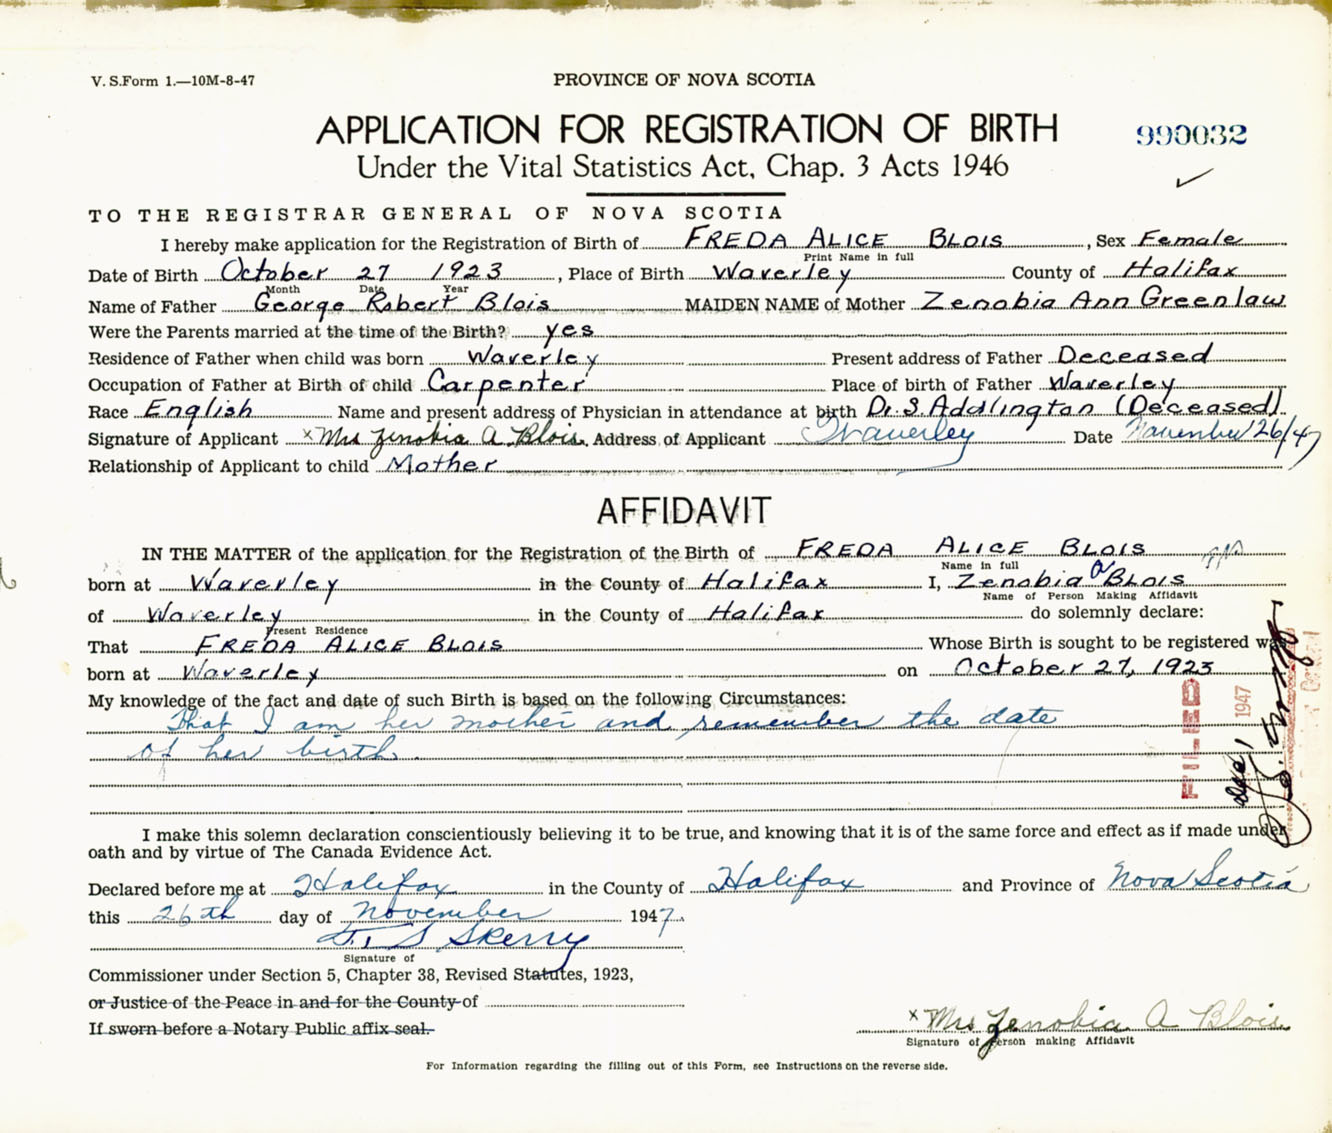 V. S.Form 1.—10M-8-47
PROVINCE OF NOVA SCOTIA
APPLICATION FOR REGISTRATION OF BIRTH
990032
Under the Vital Statistics Act, Chap. 3 Acts 1946
TO THE REGISTRAR GENERAL OF NOVA SCOTIA
I hereby make application for the Registration of Birth of FREDA ALICE BLOIS, Sex Female
Print Name in full
Date of Birth October 27 1923, Place of Birth Waverley County of Halifax
Month Date Year
Name of Father George Robert Blois MAIDEN NAME of Mother Zenobia Ann Greenlaw
Were the Parents married at the time of the Birth? yes
Residence of Father when child was born Waverley Present address of Father Deceased
Occupation of Father at Birth of child Carpenter Place of birth of Father Waverley
Race English Name and present address of Physician in attendance at birth Dr. S. Addlington (Deceased).
Signature of Applicant x Mrs Zenobia A Blois. Address of Applicant Waverley Date November 26/47
Relationship of Applicant to child Mother
AFFIDAVIT
IN THE MATTER of the application for the Registration of the Birth of FREDA ALICE BLOIS
Name in full
born at Waverley in the County of Halifax I, Zenobia a BLOIS
Name of Person Making Affidavit
of Waverley in the County of Halifax do solemnly declare:
Present Residence
That FREDA ALICE BLOIS Whose Birth is sought to be registered was
born at Waverley on October 27, 1923
My knowledge of the fact and date of such Birth is based on the following Circumstances:
That I am her mother and remember the date
of her birth.
FILED
1947
I make this solemn declaration conscientiously believing it to be true, and knowing that it is of the same force and effect as if made under
oath and by virtue of The Canada Evidence Act.
Declared before me at Halifax in the County of Halifax and Province of Nova Scotia
this 26th day of November 1947.
S Skerry
Signature of
Commissioner under Section 5, Chapter 38, Revised Statutes, 1923,
or Justice of the Peace in and for the County of
If sworn before a Notary Public affix seal.
x Mrs Zenobia A Blois.
Signature of person making Affidavit
For Information regarding the filling out of this Form, see Instructions on the reverse side.